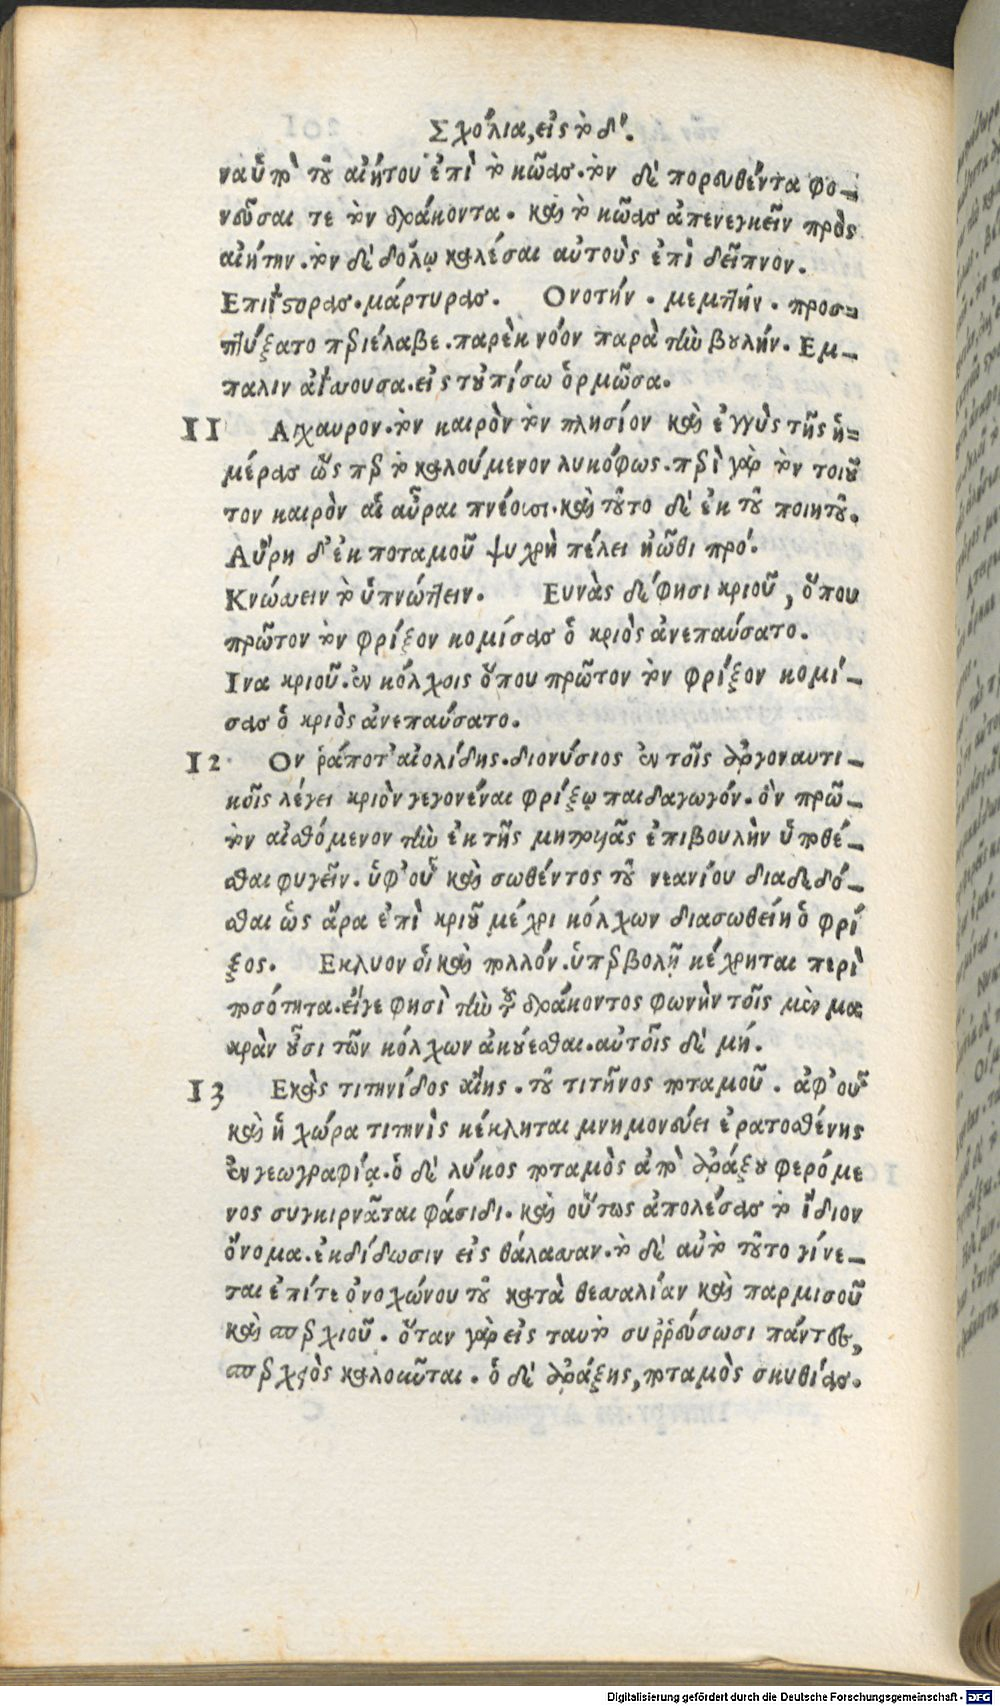 Σχόλια, εἰς τὸ δ'.
ναὑπὸ τοῦ αἰήτου ἐπὶ τὸ κῶας. τὸν δὲ πορευθέντα φο-
νεῦσαι τε τὸν δράκοντα. καὶ τὸ κῶας ἀπενεγκεῖν πρὸς
αἰήτην. τὸν δὲ δόλῳ καλέσαι αὐτοὺς ἐπὶ δεῖπνον.
Επιίστορας. μάρτυρας. Ονοτήν. μεμπτήν. προσ=
πτύξατο περιέλαβε. παρὲκ νόον παρὰ τὴν βουλήν. Εμ-
παλιν ἀΐσσουσα. εἰς τοὐπίσω ὁρμῶσα.
11 Αγχαυρον. τὸν καιρὸν τὸν πλησίον καὶ ἐγγὺς τῆς ἡ=
μέρας ὡς περ τὸ καλούμενον λυκόφως. περὶ γὰρ τὸν τοιοῦ
τον καιρὸν αἱ αὖραι πνέουσι. καὶ τοῦτο δὲ ἐκ τοῦ ποιητοῦ.
Αὔρη δ' ἐκ ποταμοῦ ψυχρὴ πέλει ἠῶθι πρό.
Κνώσσειν τὸ ὑπνώττειν. Ευνὰς δέ φησι κριοῦ, ὅπου
πρῶτον τὸν φρίξον κομίσας ὁ κριὸς ἀνεπαύσατο.
Ινα κριοῦ. ἐν κόλχοις ὅπου πρῶτον τὸν φρίξον κομί-
σας ὁ κριὸς ἀνεπαύσατο.
12 Ον ῥάποτ' αἰολίδης. διονύσιος ἐν τοῖς ἀργοναυτι-
κοῖς λέγει κριὸν γεγονέναι φρίξῳ παιδαγωγόν. ὃν πρῶ-
τον αἰσθόμενον τὴν ἐκ τῆς μητρυιᾶς ἐπιβουλὴν ὑποθέ-
σθαι φυγεῖν. ὑφ' οὗ καὶ σωθέντος τοῦ νεανίου διαδεδό-
σθαι ὡς ἄρα ἐπὶ κριοῦ μέχρι κόλχων διασωθείη ὁ φρί
ξος. Εκλυον οἱ καὶ πολλόν. ὑπερβολῇ κέχρηται περὶ
ποσότητα. εἴγε φησὶ τὴν τοῦ δράκοντος φωνὴν τοῖς μὲν μα
κρὰν οὖσι τῶν κόλχων ἀκούεσθαι. αὐτοῖς δὲ μή.
13 Εκὰς τιτηνίδος αἴης. τοῦ τιτῆνος ποταμοῦ. ἀφ' οὗ
καὶ ἡ χώρα τιτηνὶς κέκληται μνημονεύει ἐρατοσθένης
ἐν γεωγραφίᾳ. ὁ δὲ λύκος ποταμὸς ἀπὸ ἀράξου φερόμε
νος συγκιρνᾶται φάσιδι. καὶ οὕτως ἀπολέσας τὸ ἴδιον
ὄνομα. ἐκδίδωσιν εἰς θάλασσαν. τὸ δὲ αὐτὸ τοῦτο γίνε-
ται ἐπίτε ὀνοχώνου τοῦ κατὰ θεσσαλίαν καὶ παρμισοῦ
καὶ σπερχιοῦ. ὅταν γὰρ εἰς ταυτὸ συῤῥεύσωσι πάντες,
σπερχιὸς καλοῦνται. ὁ δὲ ἀράξης, ποταμὸς σκυθίας.
Digitalisierung gefördert durch die Deutsche Forschungsgemeinschaft - DFG